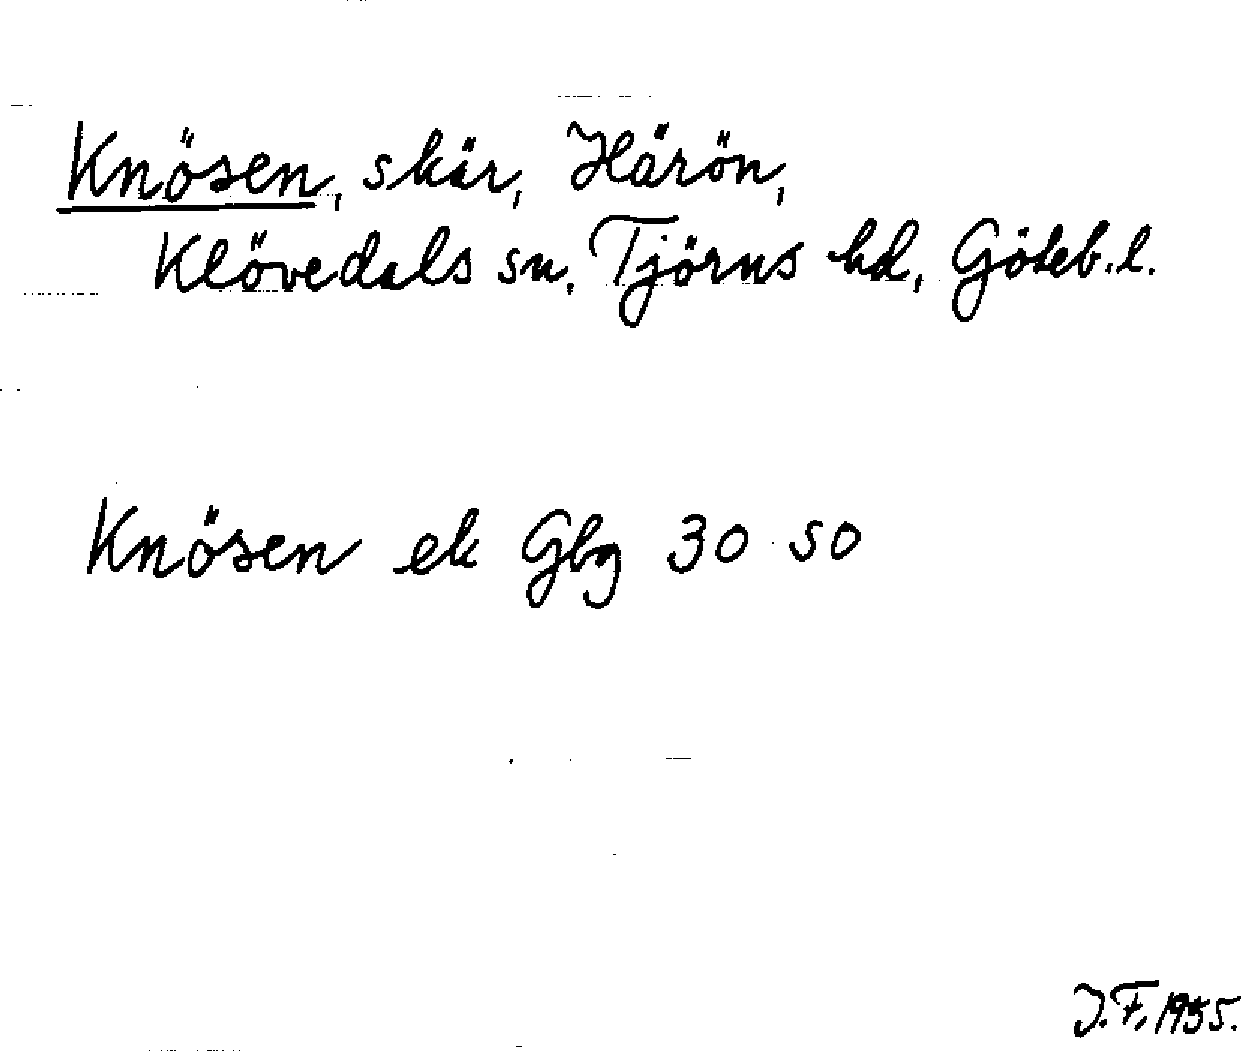 Knösen, skär, Härön,
Klövedals sn, Tjörns hd, Göteb. l.
Knösen ek Gbg 30 SO
J. F. 1955.